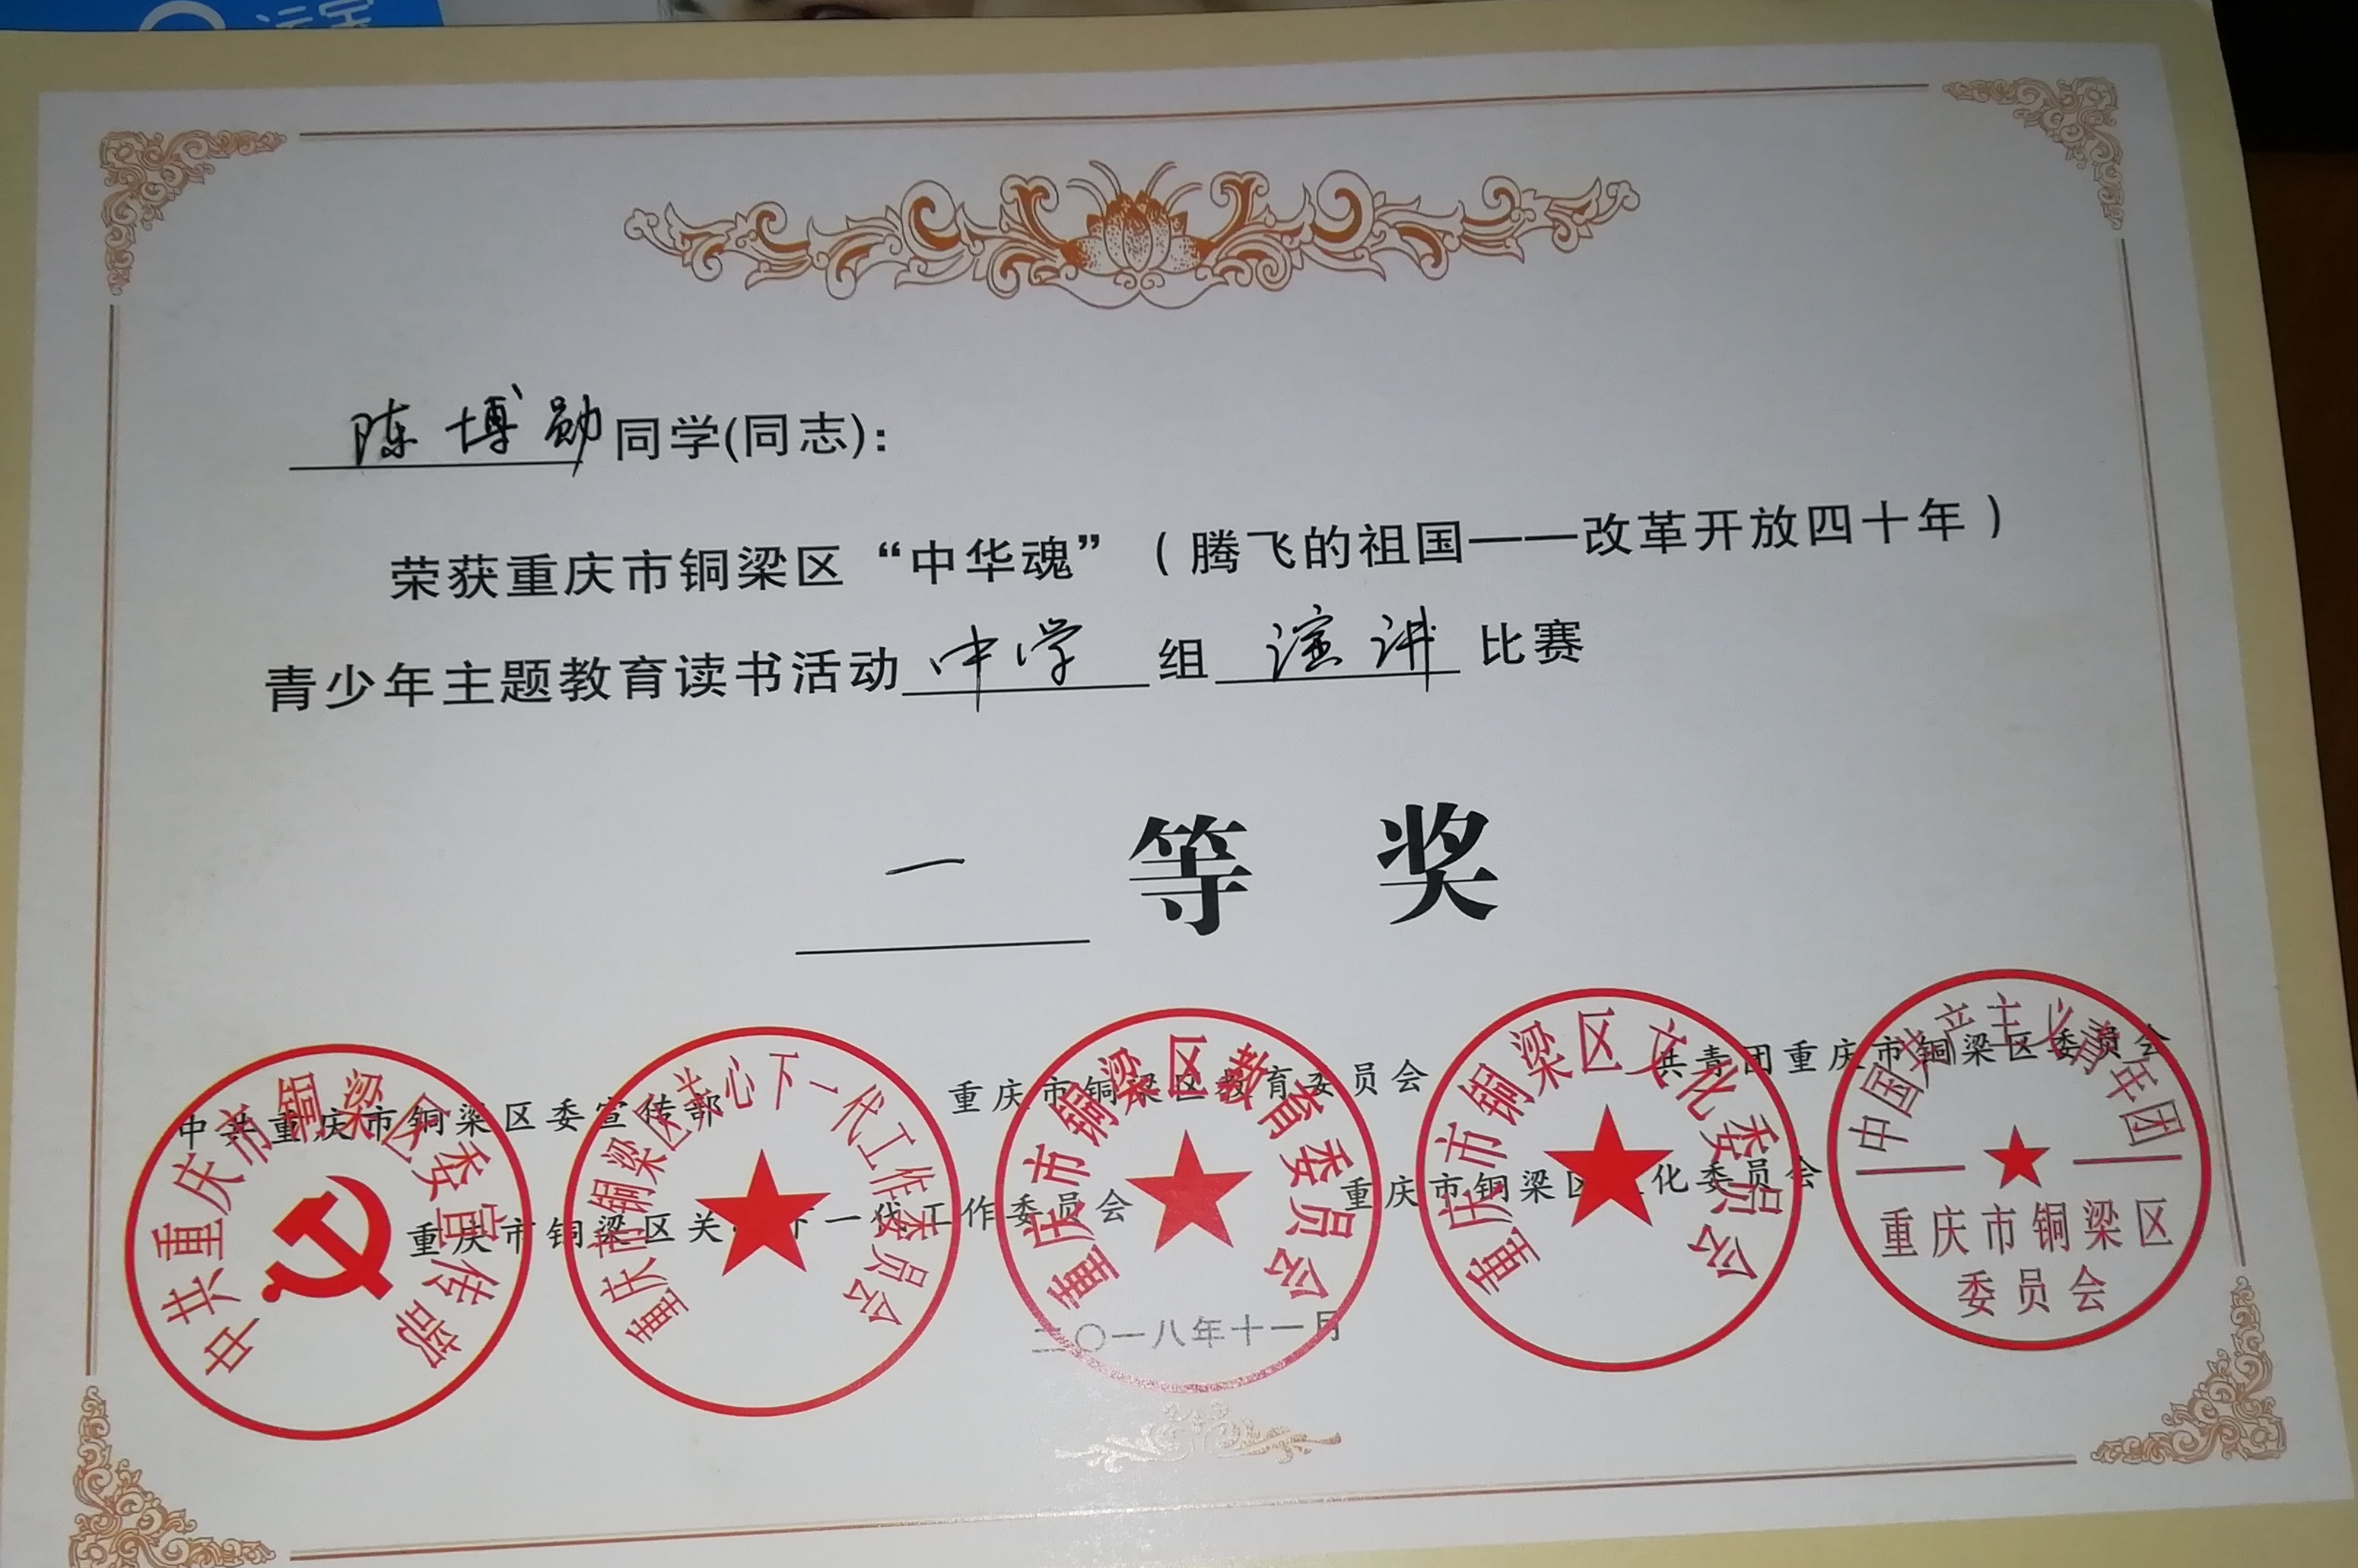 陈博勋同学(同志)：
荣获重庆市铜梁区“中华魂”（腾飞的祖国——改革开放四十年）
青少年主题教育读书活动中学组演讲比赛
一等奖
中共重庆市铜梁区委宣传部
重庆市铜梁区教育委员会
共青团重庆市铜梁区委员会
重庆市铜梁区关心下一代工作委员会
重庆市铜梁区文化委员会
二〇一八年十一月
中共重庆市铜梁区委宣传部
重庆市铜梁区关心下一代工作委员会
重庆市铜梁区教育委员会
重庆市铜梁区文化委员会
中国共产主义青年团
重庆市铜梁区
委员会